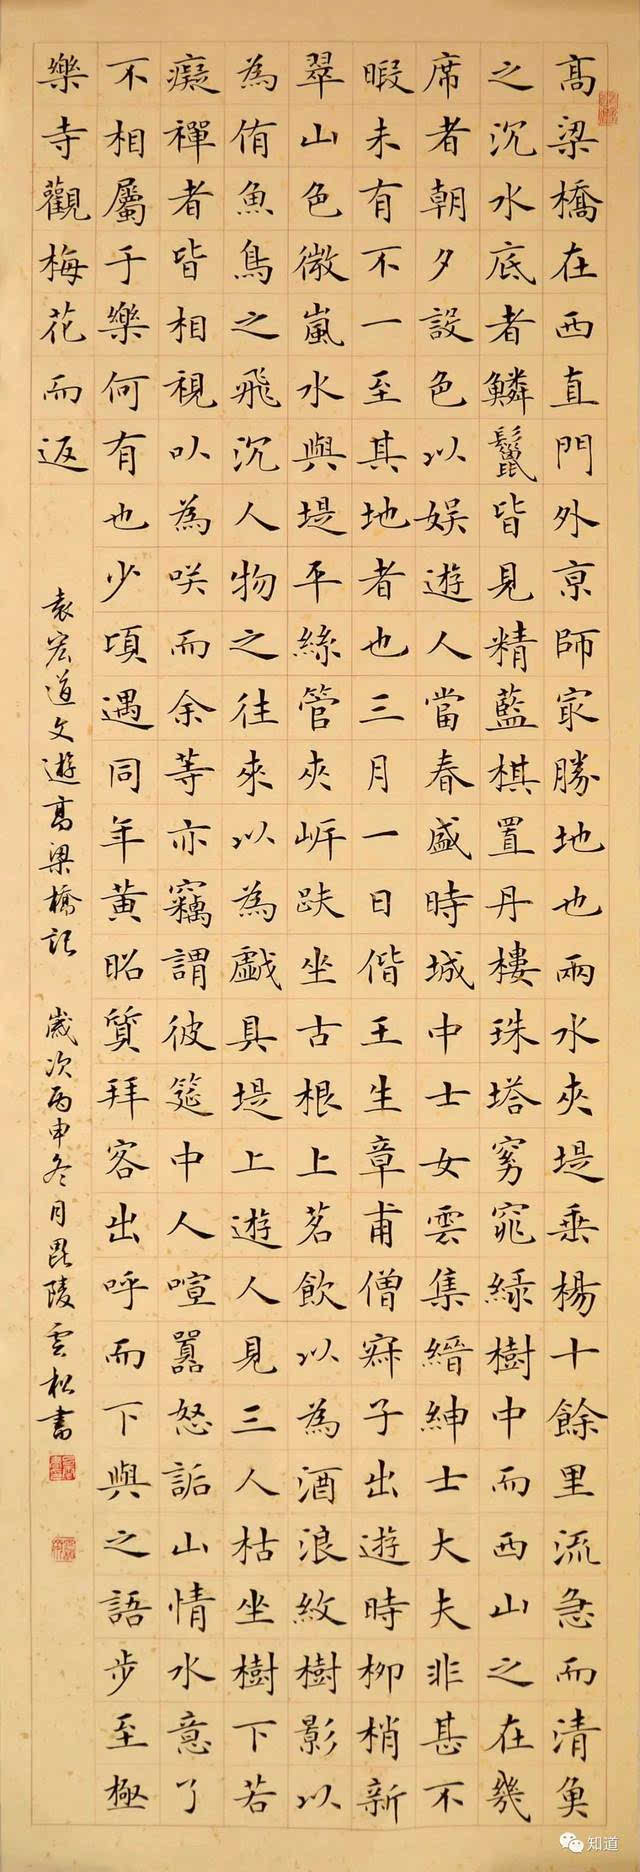 高梁橋在西直門外京師㝡勝地也兩水夾堤垂楊十餘里流急而清魚
之沉水底者鱗鬣皆見精藍棋置丹樓珠塔窈窕綠樹中而西山之在幾
席者朝夕設色以娛遊人當春盛時城中士女雲集縉紳士大夫非甚不
暇未有不一至其地者也三月一日偕王生章甫僧寂子出遊時柳梢新
翠山色微嵐水與堤平絲管夾岸趺坐古根上茗飲以為酒浪紋樹影以
為侑魚鳥之飛沉人物之往來以為戲具堤上遊人見三人枯坐樹下若
癡禪者皆相視以為咲而余等亦竊謂彼筵中人喧囂怒詬山情水意了
不相屬于樂何有也少頃遇同年黃昭質拜客出呼而下與之語步至極
樂寺觀梅花而返
袁宏道文遊高梁橋記 歲次丙申冬月毘陵雲松書
知道